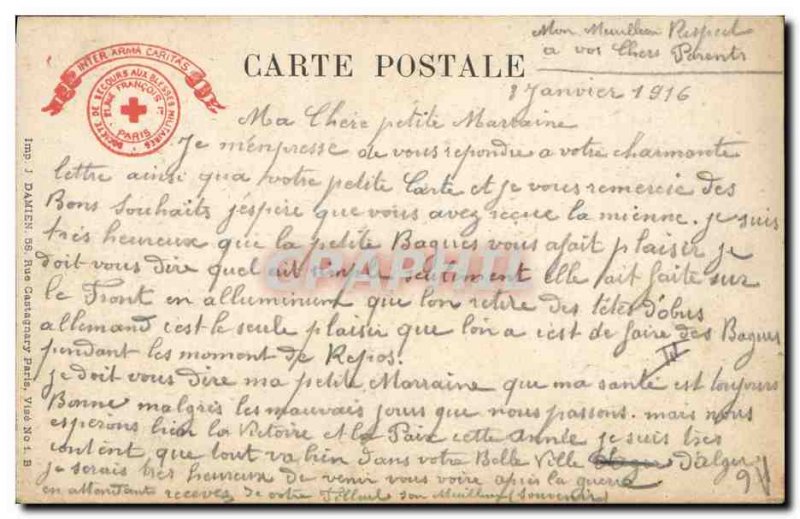 Mon Meuilleu Respect
a vos Chers Parents
INTER ARMA CARITAS
SOCIÉTÉ DE SECOURS AUX BLESSÉS MILITAIRES
21, RUE FRANÇOIS 1er
PARIS
CARTE POSTALE
8 Janvier 1916
Ma Chere petite Marraine
Je m'enpresse de vous repondre a votre charmante
lettre ainsi qua votre petite Carte et je vous remercie des
Bons Souhaits j'espère que vous avez reçue la mienne. je suis
très heureux que la petite Bagues vous a fait plaisir je
doit vous dire quel ait simple seutiment elle ait faite sur
le Front en alluminium que lon retire des têtes d'obus
allemand c'est le seule plaisir que lon a c'est de faire des Bagues
pendant les moment de Repos.
III
je doit vous dire ma petite Marraine que ma santé est toujours
Bonne malgrès les mauvais jours que nous passons. mais nous
esperons bien la Victoire et la Paix cette Année je suis très
content que tout va bien dans votre Belle Ville d'alger
je serais très heureux de venir vous voire après la guerre
en attendant recevez de votre Filleul son Meuilleur (Souvenir)
CPAPHIL
Imp. J. DAMIEN. 58, Rue Castagnary Paris, Visé No 1. B